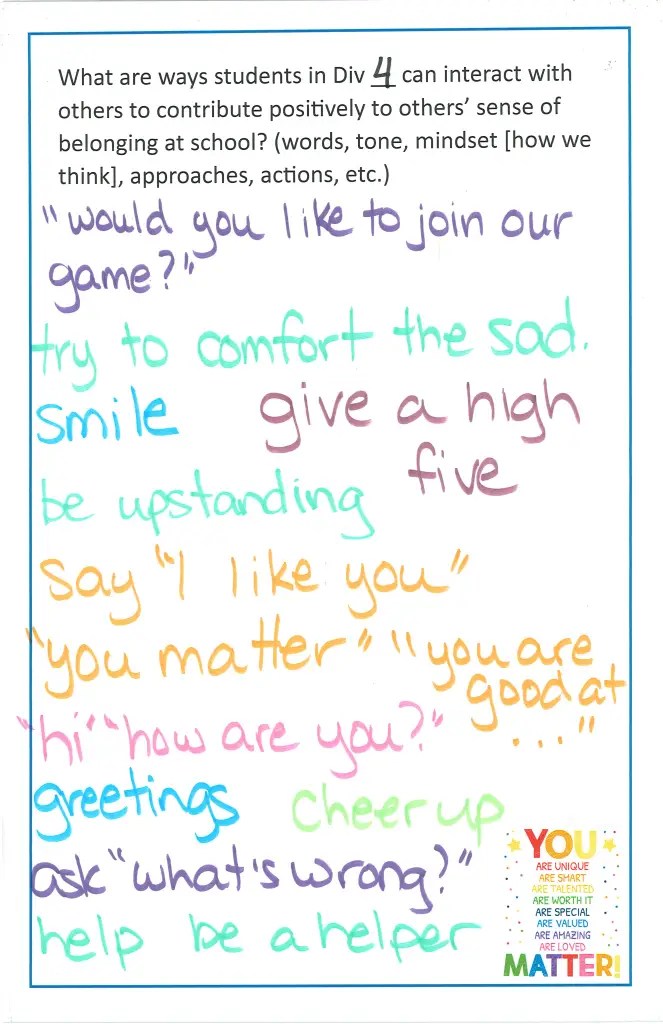 What are ways students in Div 4 can interact with
others to contribute positively to others' sense of
belonging at school? (words, tone, mindset [how we
think], approaches, actions, etc.)
"would you like to join our
game?"
try to comfort the sad.
smile give a high
five
be upstanding
say "I like you"
"you matter" "you are
good at
..."
"hi" "how are you?"
greetings cheer up
ask "what's wrong?"
help be a helper
YOU
ARE UNIQUE
ARE SMART
ARE TALENTED
ARE WORTH IT
ARE SPECIAL
ARE VALUED
ARE AMAZING
ARE LOVED
MATTER!